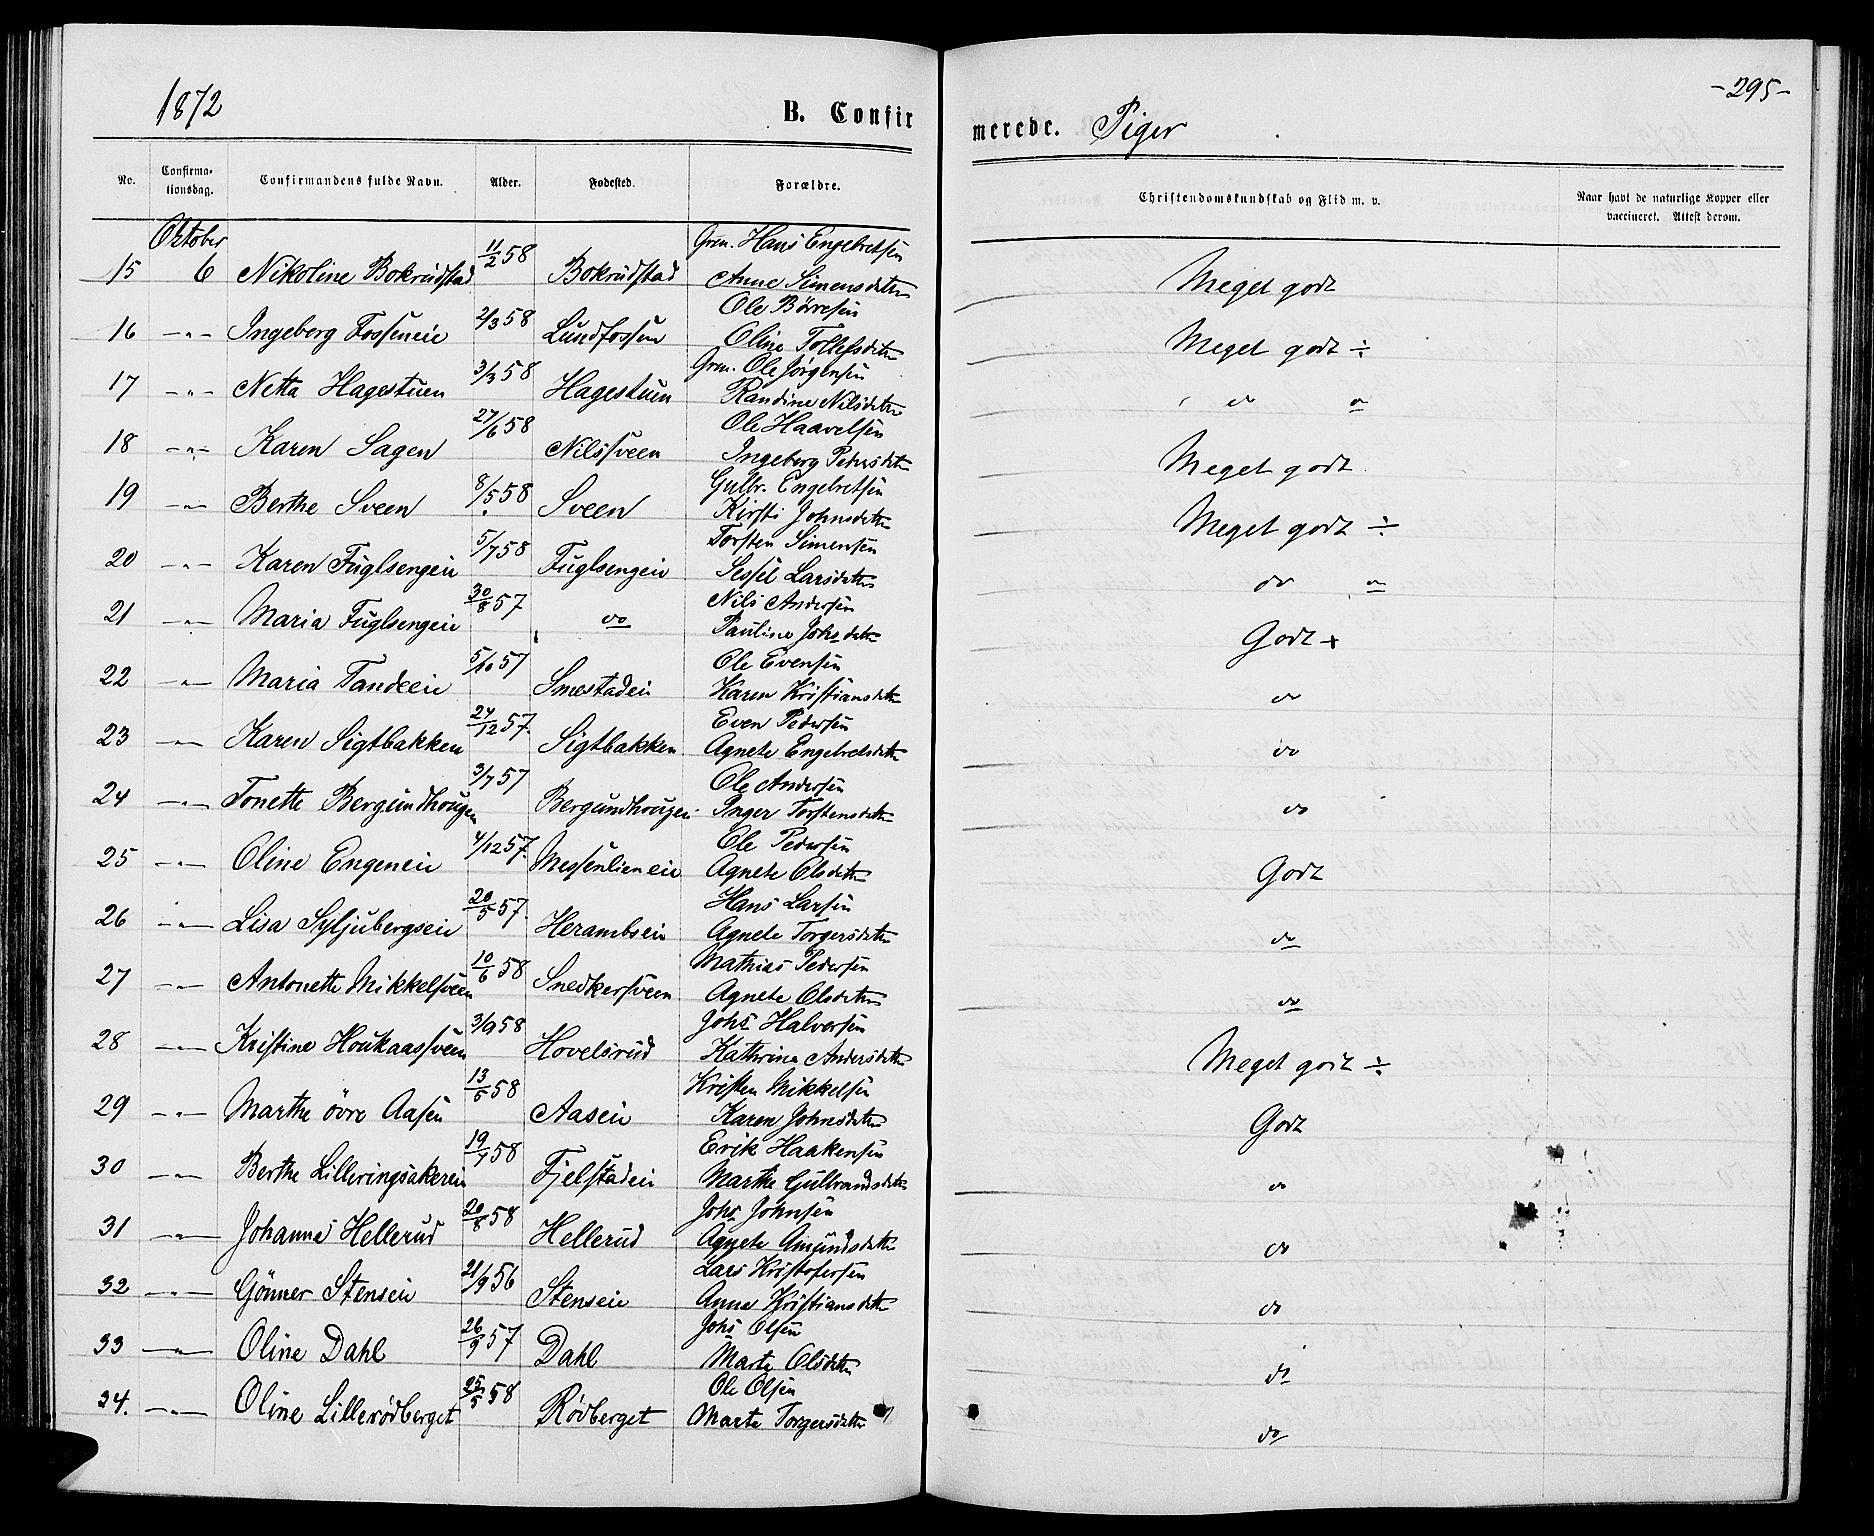 1872 B. Confirmerede. Piger -295-
No. Confirmationsdag. Confirmandens fulde Navn. Alder. Fødested. Forældre. Christendomskundskab og Flid m. v. Naar havt de naturlige Kopper eller vaccineret. Attest derom.
Oktober
Grm. Hans Engebretsen
15 6 Nikoline Bokrudstad 11/2 58 Bokrudstad Anne Simensdatter Meget godt
Ole Børresen
16 -"- Ingeborg Fosseneie 2/3 58 Lundfossen Oline Tollefsdatter Meget godt ÷
Grm. Ole Jørgensen
17 -"- Netta Hagestuen 3/3 58 Hagestuen Randine Nilsdatter do
Ole Haavelsen
18 -"- Karen Sagen 27/6 58 Nilssveen Ingeborg Pedersdatter Meget godt
Gulbr. Engebretsen
19 -"- Berthe Sveen 8/5 58 Sveen Kirsti Johnsdatter Meget godt ÷
Torsten Simensen
20 -"- Karen Fuglsengeie 5/7 58 Fuglsengeie Sessel Larsdatter do
Nils Andersen
21 -"- Maria Fuglsengeie 30/8 57 do Pauline Johsdatter Godt +
Ole Evensen
22 -"- Maria Tandeeie 5/10 57 Smestadeie Karen Kristiansdatter do
Even Pedersen
23 -"- Karen Sigtbakken 24/12 57. Sigtbakken Agnete Engebretsdatter do
Ole Andersen
24 -"- Tonette Bergundhougen 3/7 57 Bergundhougen Inger Torstensdatter do
Ole Pedersen
25 -"- Oline Engeneie 4/12 57. Messenlieneie Agnete Olsdatter Godt
Hans Larsen
26 -"- Lisa Syljubergseie 20/5 57. Herambseie Agnete Torgersdatter do
Mathias Pedersen
27 -"- Antonette Mikkelsveen 10/6 58 Snedkersveen Agnete Olsdatter do
Johs Halvorsen
28 -"- Kristine Houkaassveen 3/9 58 Hovelsrud Kathrine Andersdatter Meget godt ÷
Kristen Mikkelsen
29 -"- Marthe øvre Aasen 13/5 58 Aaseie Karen Johnsdatter Godt
Erik Haakensen
30 -"- Berthe Lilleringsakereie 19/7 58 Fjelstadeie Marthe Gulbrandsdatter do
Johs Johnsen
31 -"- Johanne Hellerud 20/8 58 Hellerud Agnete Amundsdatter do
Lars Kristofersen
32 -"- Gønner Stenseie 21/9 56 Stenseie Anne Kristiansdatter do
Johs Olsen
33 -"- Oline Dahl 26/9 57 Dahl Marte Olsdatter do
Ole Olsen
34. -"- Oline Lillerødberget 25/5 58 Rødberget Marte Torgersdatter do